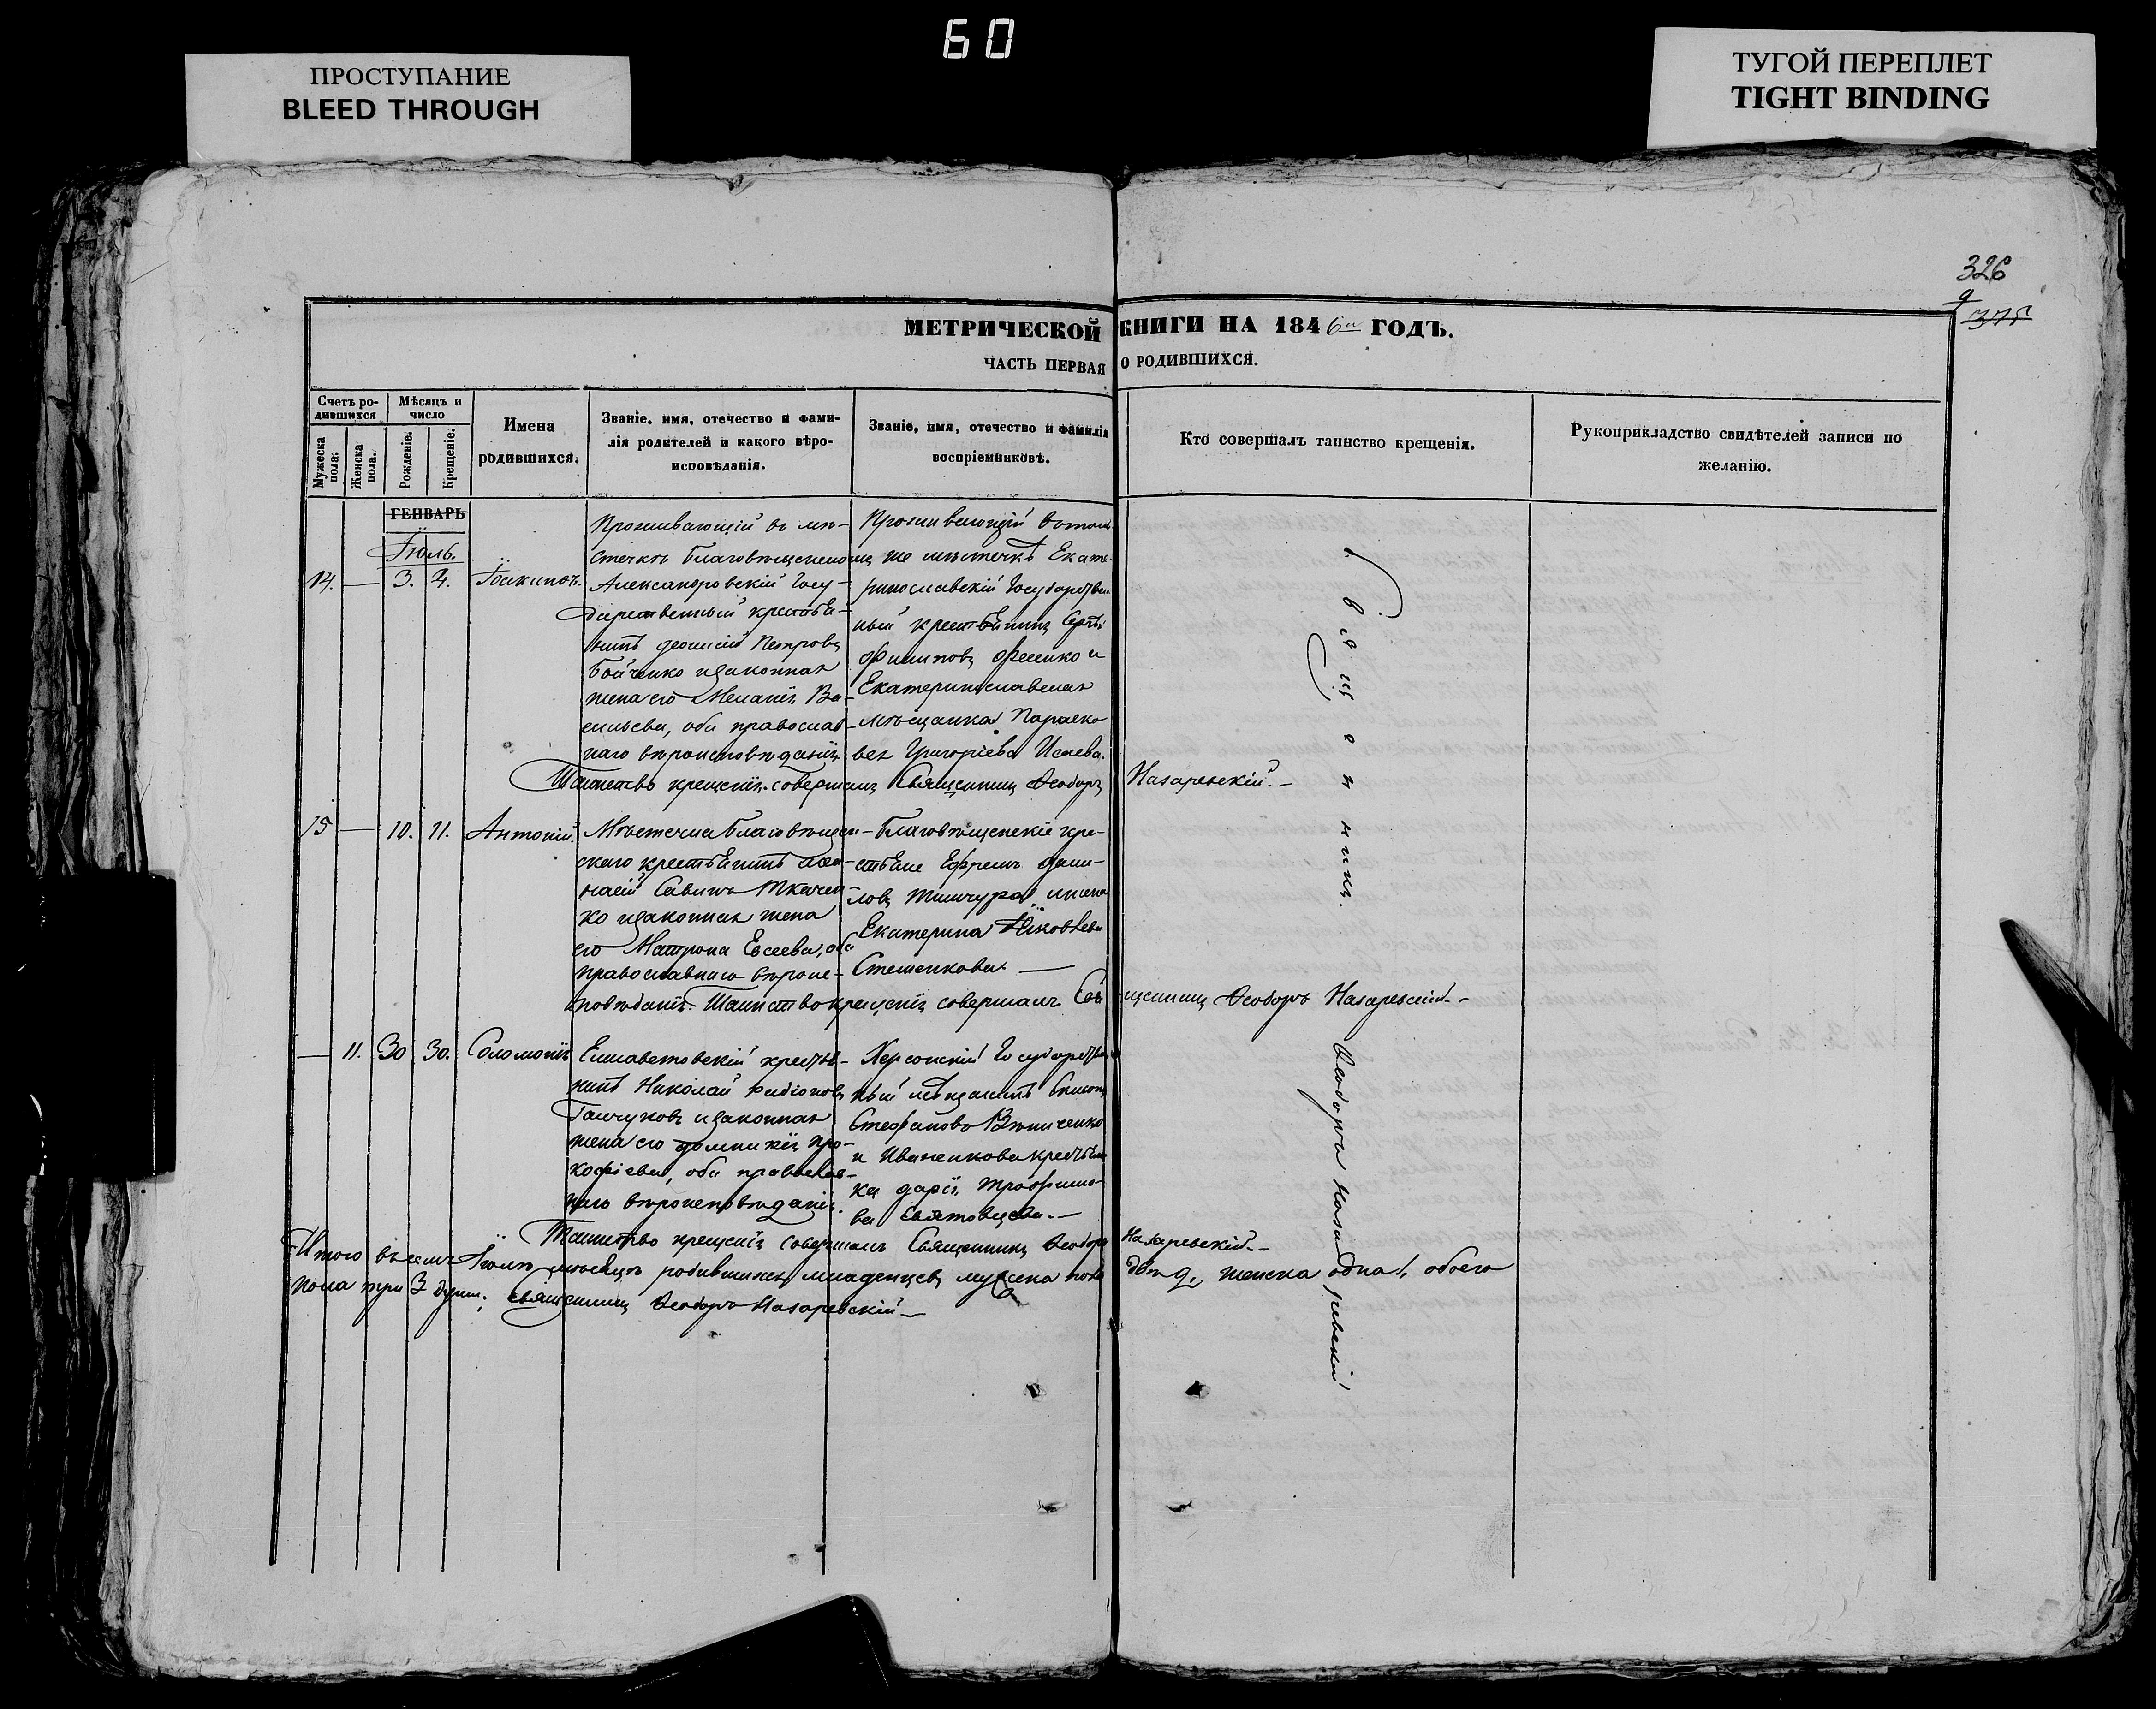 60
ПРОСТУПАНИЕ
BLEED THROUGH
ТУГОЙ ПЕРЕПЛЕТ
TIGHT BINDING
326
375
МЕТРИЧЕСКОЙ КНИГИ НА 1846 ГОДЪ.
ЧАСТЬ ПЕРВАЯ О РОДИВШИХСЯ.
Счетъ ро-
дившихся
Мужеска
пола.
Женска
пола.
Мѣсяцъ и
число
Рожденіе.
Крещеніе.
Имена
родившихся.
Званіе, имя, отечество и фами-
лія родителей и какого вѣро-
исповѣданія.
Званіе, имя, отечество и фамилія
воспріемниковъ.
Кто совершалъ таинство крещенія.
Рукоприкладство свидѣтелей записи по
желанію.
ГЕНВАРЬ
Іюль.
14. — 3. 4. Іоакимъ.
Проживающій въ мѣ-
стечкѣ
Александровскій Госу-
дарственный крестья-
нинъ Петровъ
Бойченко и законная
жена его Меланія Ва-
сильева, оба православ-
наго вѣроисповѣданія
Проживающій въ том
же мѣстечкѣ Екате-
ринославскій Государствен
ный крестьянинъ
Филиповъ Фесенко и
Екатеринославская
мѣщанка Параско-
вея Григоріева Исаева.
Таинство крещенія совершалъ Священникъ Ѳеодоръ Назаревскій.—
15 — 10. 11. Антоній.
Мѣстечка Благовѣщен-
скаго крестьянинъ
Савинъ Ткачен-
ко и законная жена
его Матрона Евсеева, оба
православнаго вѣроис-
повѣданія. Таинство крещенія совершалъ Свя-
Благовѣщенскіе кре-
стьяне Ефремъ Дани-
ловъ
Екатерина Яковлева
Стешенкова. —
щенникъ Ѳеодоръ Назаревскій.—
— 11. 30 30. Соломонія
Елисаветовскій крестья-
нинъ Николай Родіоновъ
и законная
жена его Домникія Про-
кофіева, оба православ-
наго вѣроисповѣданія.
Херсонскій Государствен
ный
Стефановъ
и крестьян
ка Дарія Трофимо-
ва
Таинство крещенія совершалъ Священникъ Ѳеодоръ Назаревскій.—
Итого въ семъ Іюлѣ мѣсяцѣ родившихся младенцевъ мужеска пола два 2, женска одна 1, обоего
пола три 3 души; Священникъ Ѳеодоръ Назаревскій —
Священникъ
Ѳеодоръ Назаревскій